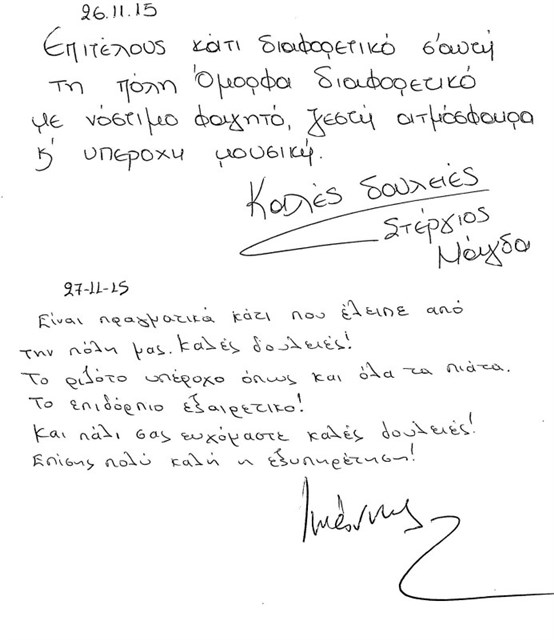 26.11.15
Επιτέλους κάτι διαφορετικό σ'αυτή
τη πόλη Όμορφα διαφορετικό
με νόστιμο φαγητό, ζεστή ατμόσφαιρα
κ' υπέροχη μουσική.
Καλές δουλειές
Στέργιος
Μάγδα
27-11-15
Είναι πραγματικά κάτι που έλειπε από
την πόλη μας. Καλές δουλειές!
Το ριζότο υπέροχο όπως και όλα τα πιάτα.
Το επιδόρπιο εξαιρετικο!
Και πάλι σας ευχόμαστε καλές δουλειές!
Επίσης πολύ καλή η εξυπηρέτηση!